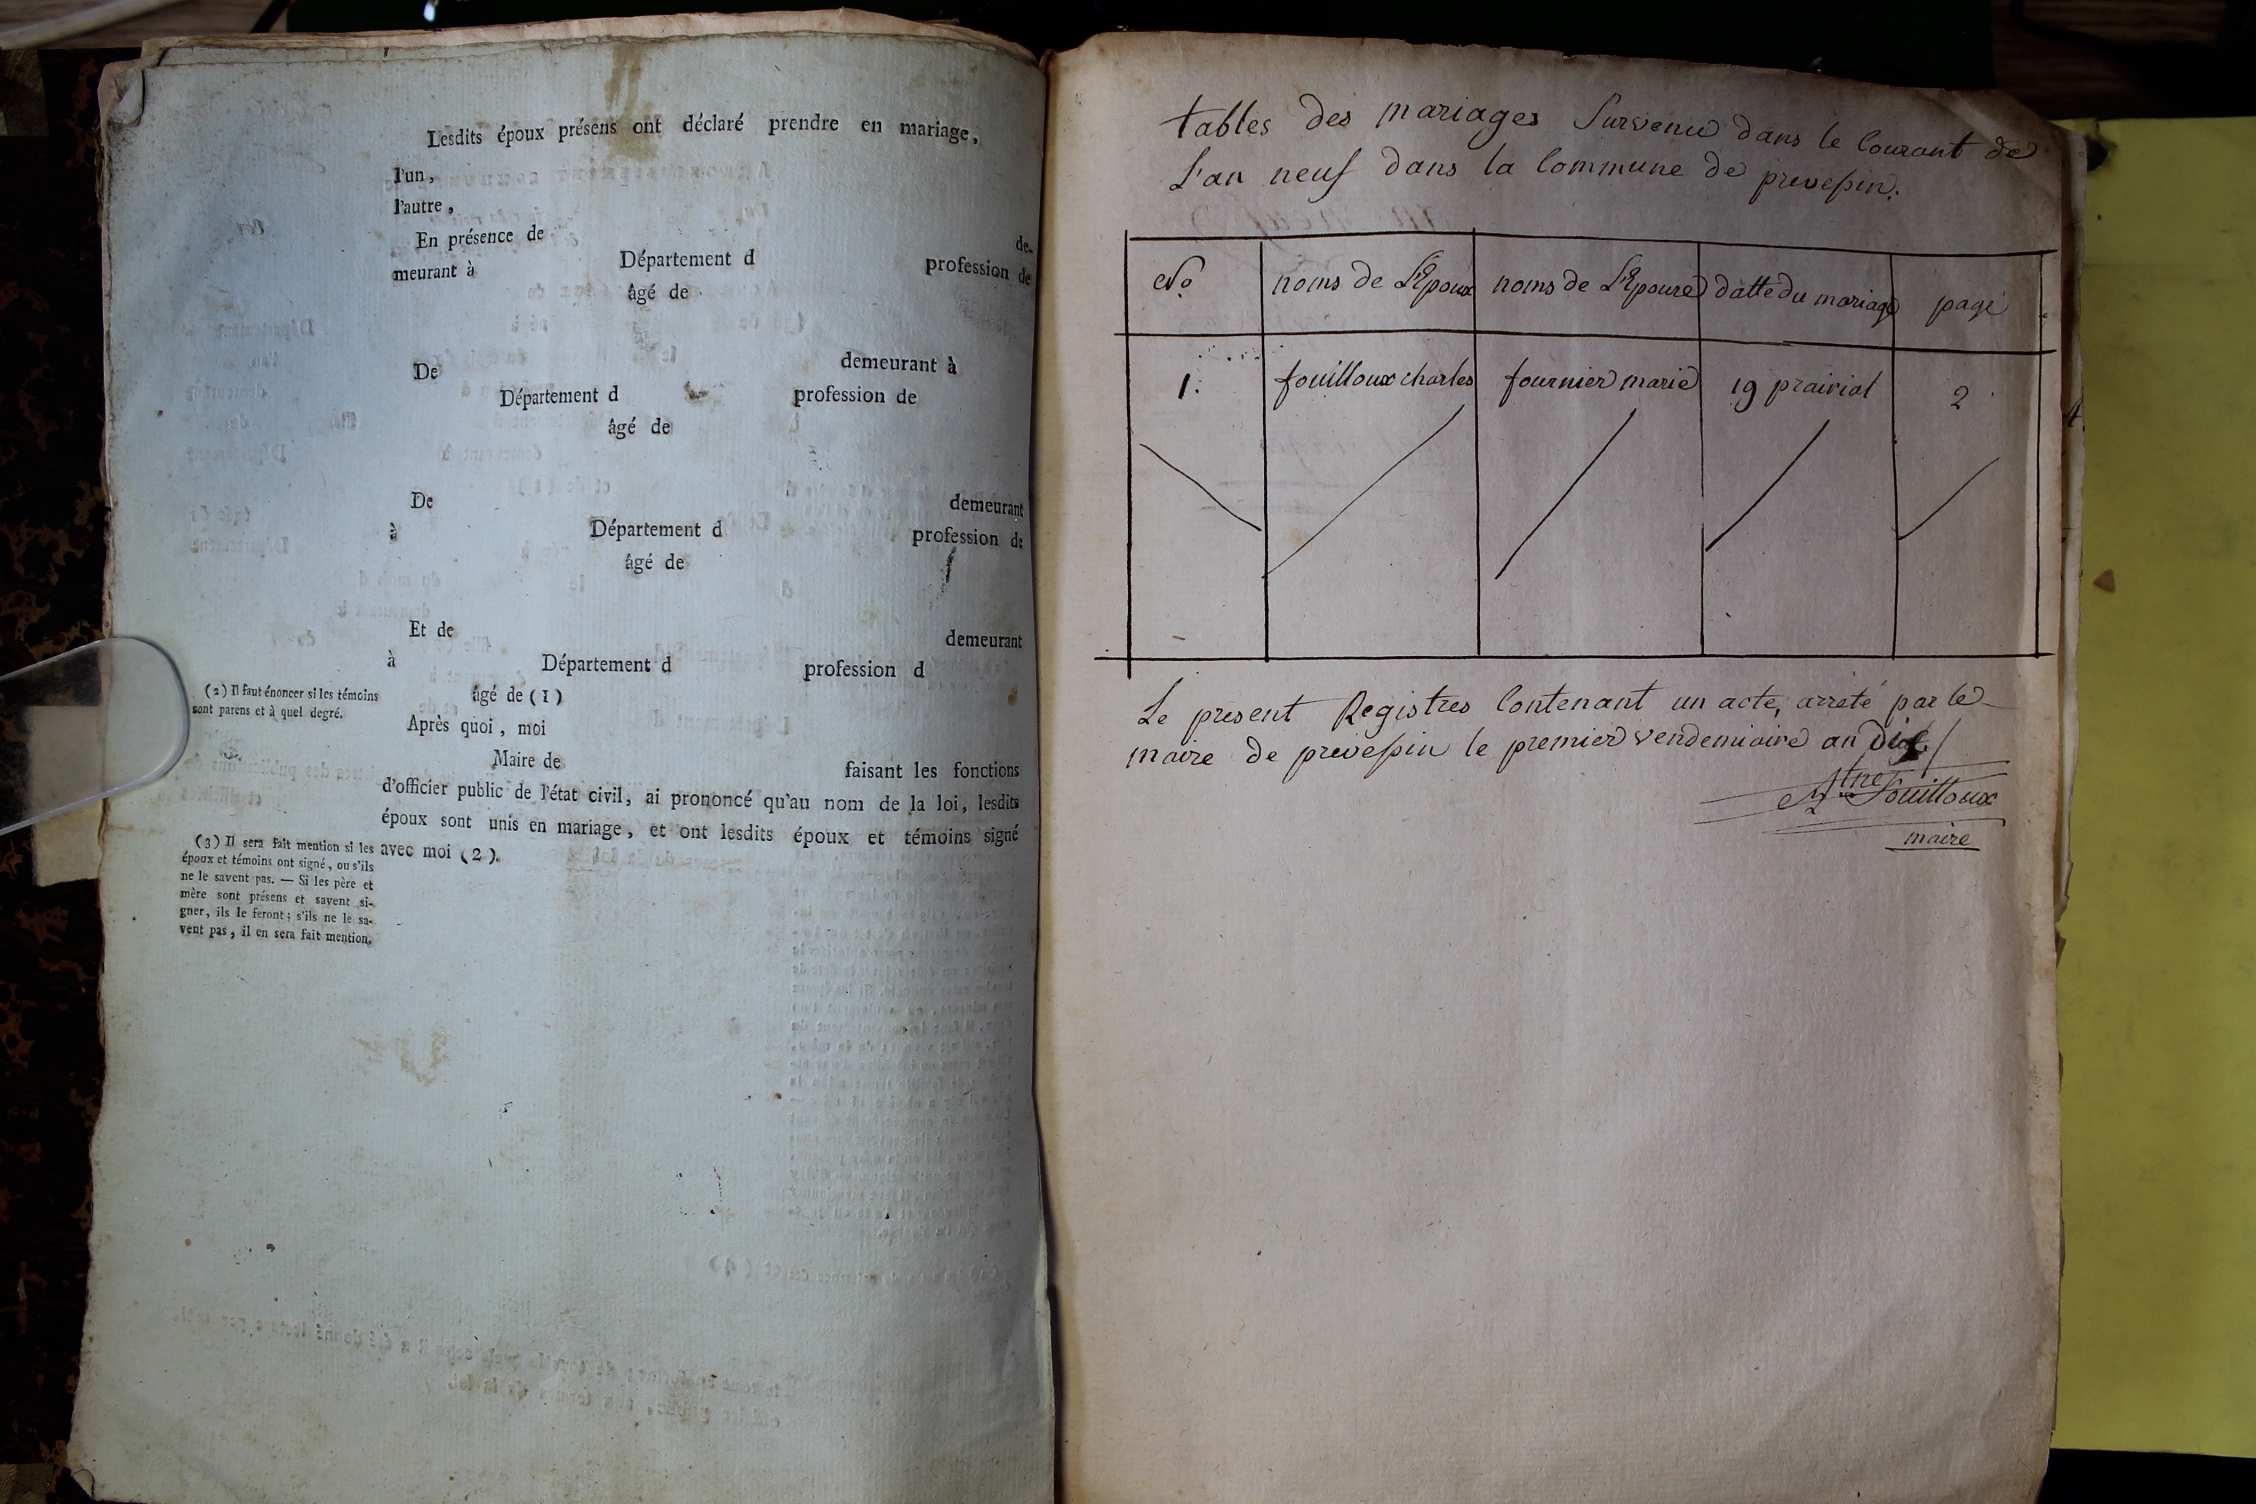 Lesdits époux présens ont déclaré prendre en mariage,
l'un,
l'autre,
En présence de de-
meurant à Département d profession de
âgé de
De demeurant à
Département d profession de
âgé de
De demeurant
à Département d profession de
âgé de
Et de demeurant
à Département d profession d
âgé de (1)
Après quoi, moi
Maire de faisant les fonctions
d'officier public de l'état civil, ai prononcé qu'au nom de la loi, lesdits
époux sont unis en mariage, et ont lesdits époux et témoins signé
avec moi (2).
(2) Il faut énoncer si les témoins
sont parens et à quel degré.
(3) Il sera fait mention si les
époux et témoins ont signé, ou s'ils
ne le savent pas. — Si les père et
mère sont présens et savent si-
gner, ils le feront; s'ils ne le sa-
vent pas, il en sera fait mention.
tables des mariages Survenu dans le Courant de
L'an neuf dans la Commune de prevessin.
No noms de L'Epoux noms de L'Epouse datte du mariage page
1. fouilloux charles fournier marie 19 prairial 2
Le present Registres Contenant un acte, arreté par le
maire de prevessin le premier vendemiaire an Dix
fouilloux
maire